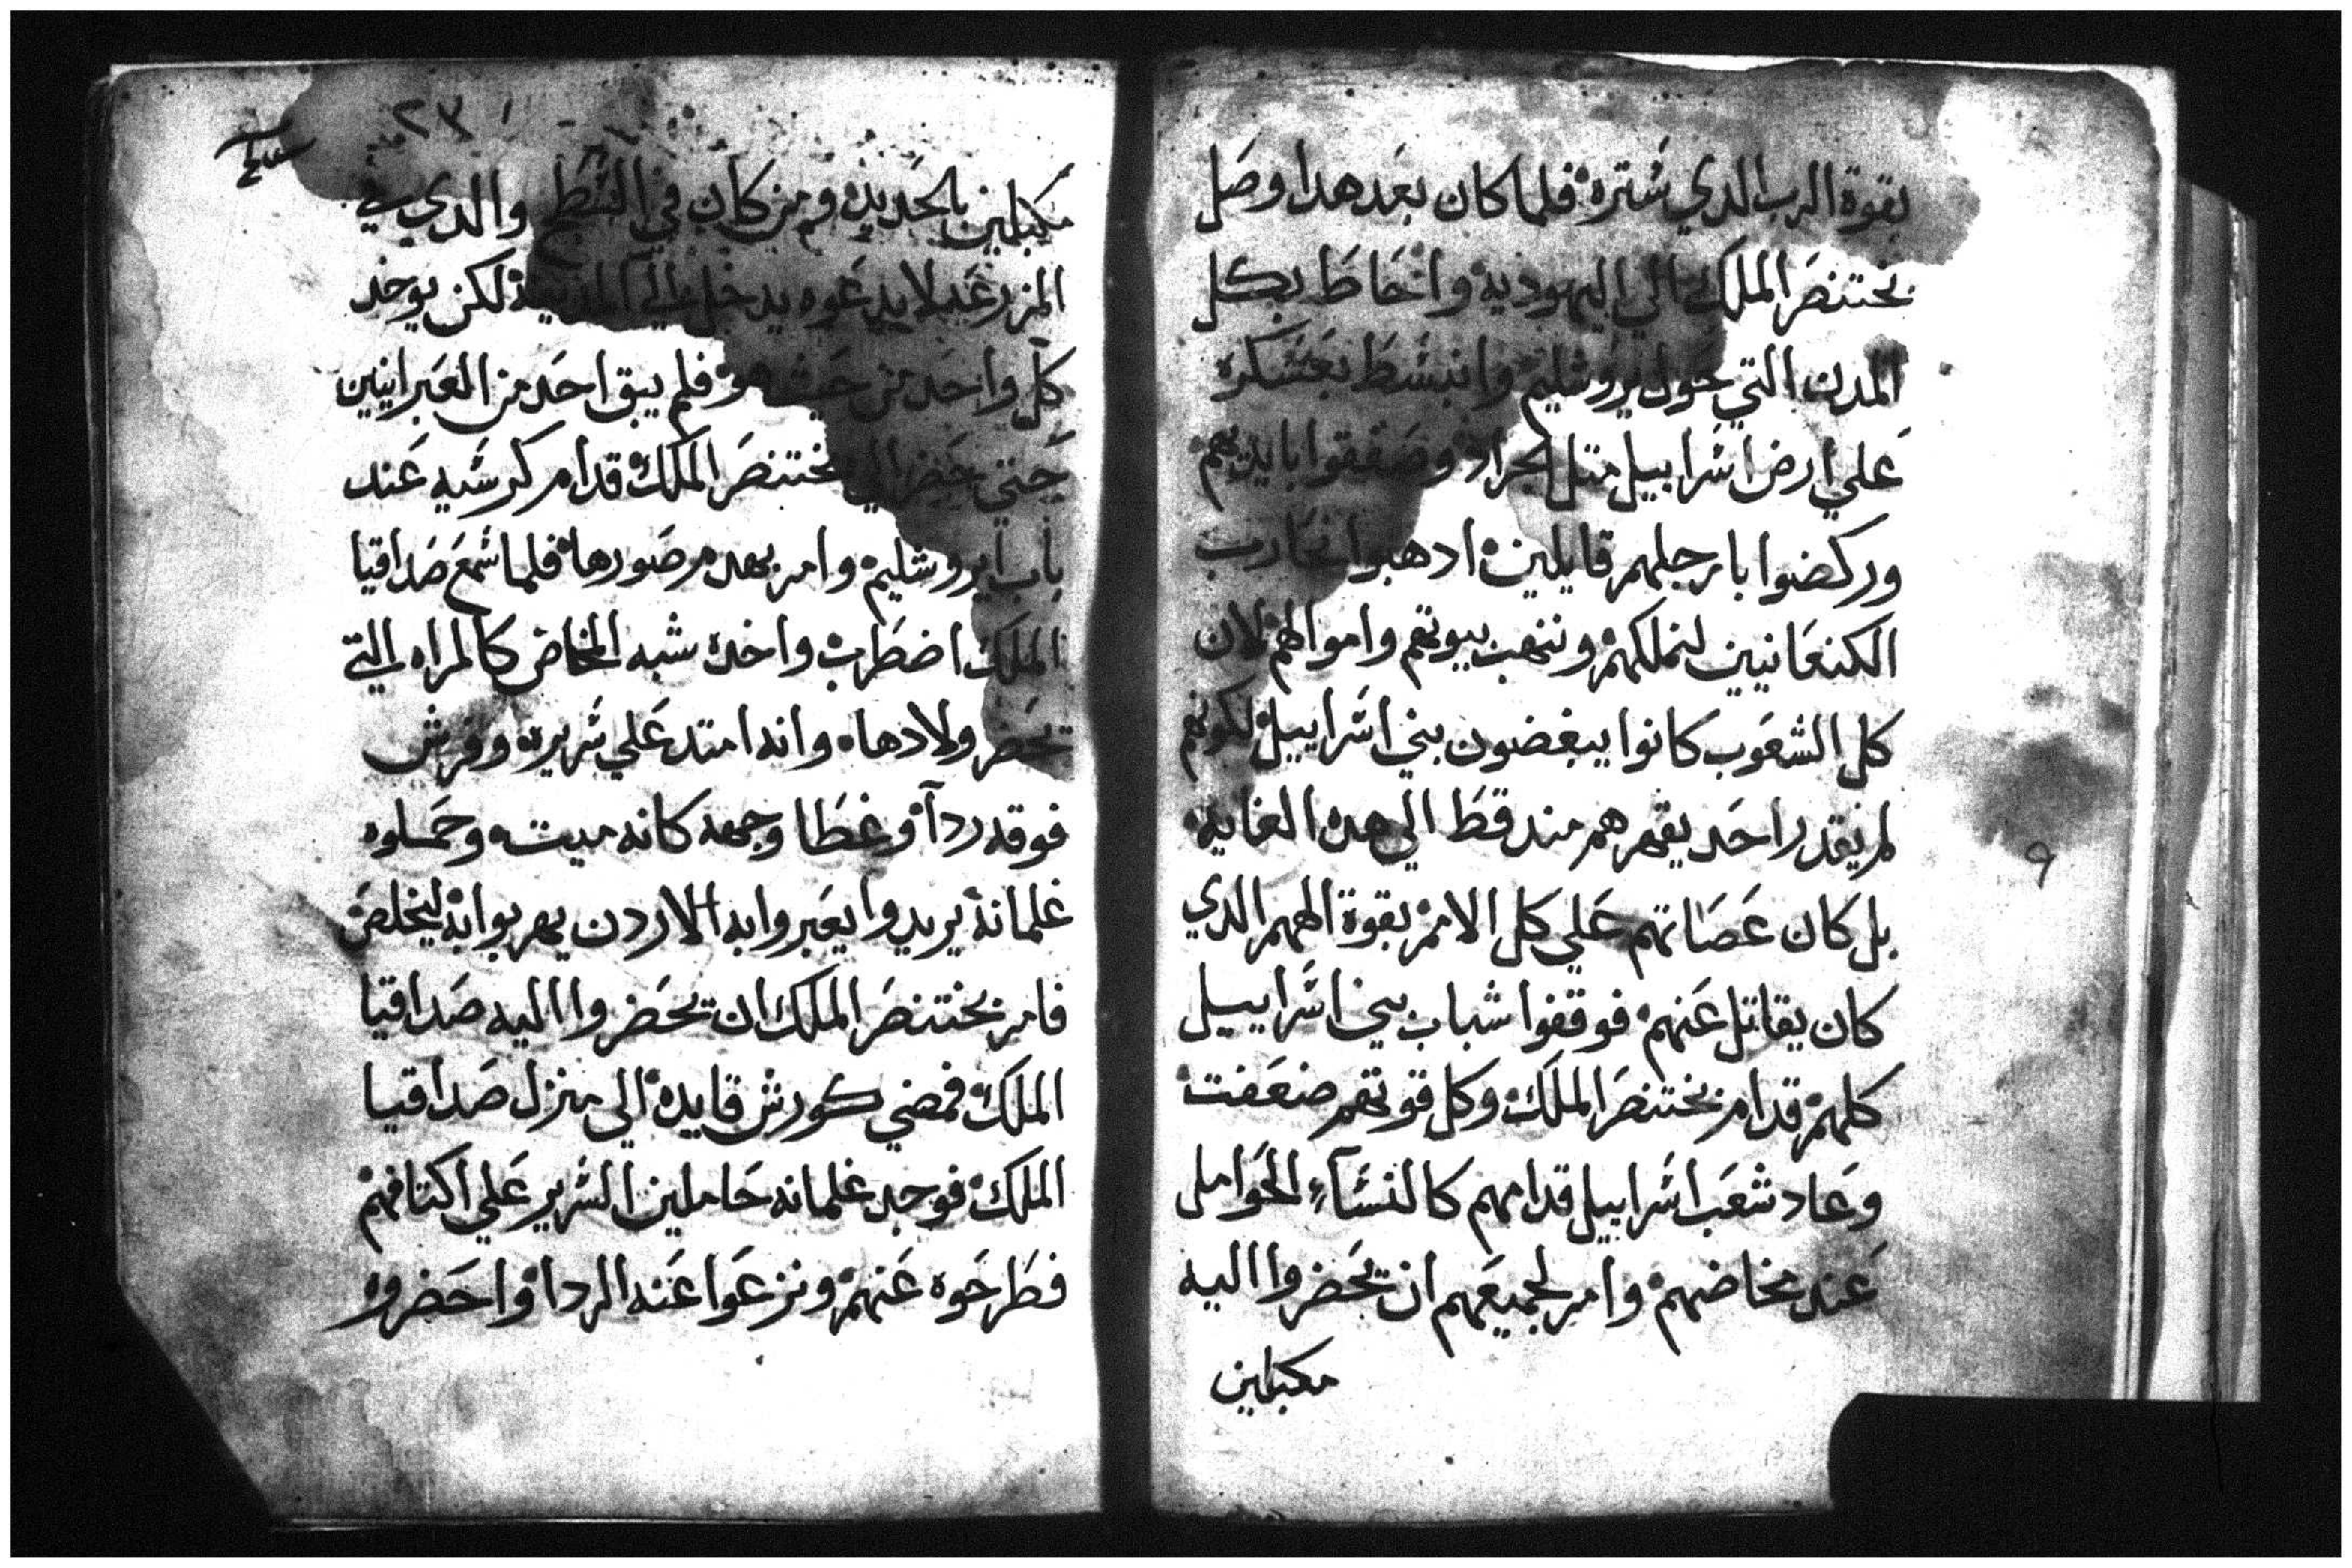 بقوة الرب الدي شتره فلما كان بعد هدا وصل
بختنصر الملك الي اليهوديه واحاط بكل
المدن التي حول يروشليم وانبشط بعشكره
علي ارض اشراييل متل الجراد وصفقوا بايديهم
وركضوا بارجلهم قايلين ادهبوا نحارب
الكنعانيين لنملكهم وننهب بيوتهم واموالهم لان
كل الشعوب كانوا يبغضون بني اشراييل لكونهم
لم يقدر احد يقهرهم مند قط الي هده الغايه
بل كان عصاتهم علي كل الامم بقوة الههم الدي
كان يقاتل عنهم فوقفوا شباب بني اشراييل
كلهم قدام بختنصر الملك وكل قوتهم ضعفت
وعاد شعب اشراييل قدامهم كالنشآء الحوامل
عند مخاضهم وامر لجميعهم ان يحضروا اليه
مكبلين
٩
٢٣
مكبلين بالحديد ومن كان في الشطح والدي في
المزرعه لا يدعوه يدخل الي المدينه لكن يوخد
كل واحد من حيث هو فلم يبق احد من العبرانيين
حتي حضر الي بختنصر الملك قدام كرشيه عند
باب ايروشليم وامر بهدم صورها فلما شمع صداقيا
الملك اضطرب واخده شبه المخاض كالمراه التي
تحضر ولادها وانه امتد علي شريره وفرش
فوقه ردآ وغطا وجهه كانه ميت وحملوه
غلمانه يريدوا يعبروا به الاردن يهربوا به ليخلص
فامر بختنصر الملك ان يحضروا اليه صداقيا
الملك فمضي كورش قايده الي منزل صداقيا
الملك فوجد غلمانه حاملين الشرير علي اكتافهم
فطرحوه عنهم ونزعوا عنه الردا واحضروه